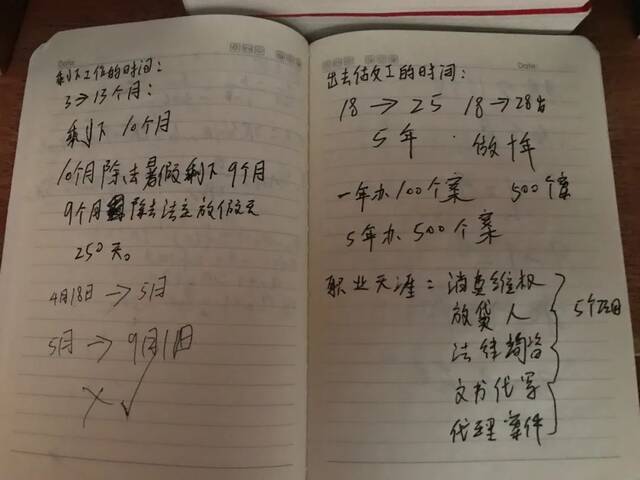 Date
剩下工作的时间：
3→13个月：
剩下 10个月
10个月除去暑假剩下9个月
9个月 除去法定放假天
250天。
4月18日 → 5月
5月 → 9月1日
× ✓
Date
出去估女工的时间：
18 → 25 18 → 28岁
5年 · 做十年
一年办100个案 500个案
5年办500个案
职业天涯：消费维权
放贷人
法律
文书代写
代理案件
5个项目